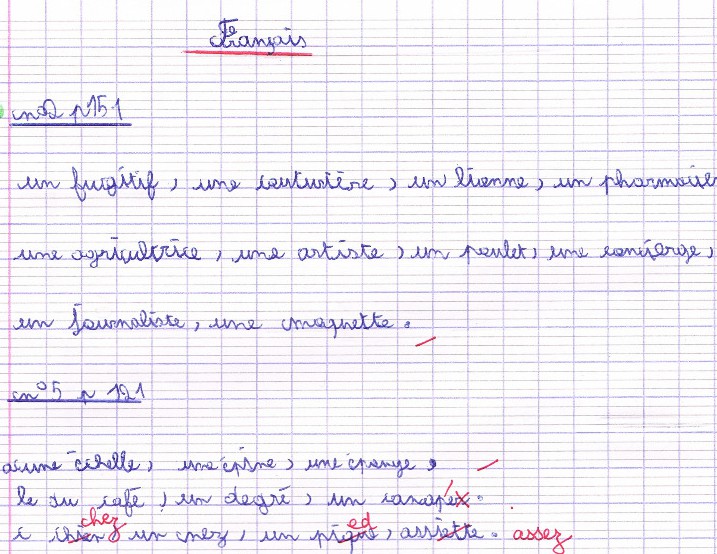 Français
n°2 p 151
un fugitif, une couturière, un lionne, un pharmacien
une agricultrice, une artiste, un poulet, une concierge,
un journaliste, une maquette.
n° 5 p 121
a une échelle, une épine, une éponge,
le du café, un degré, un canapéx.
c chez un nez, un pied, assiette. assez